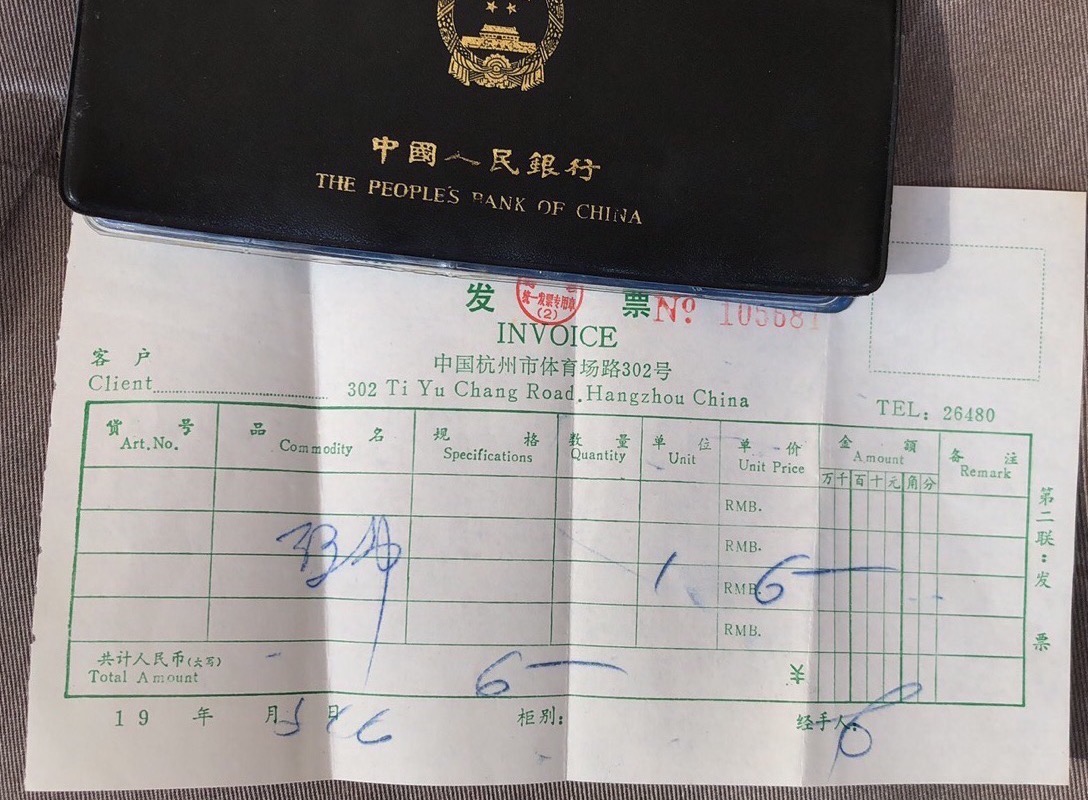 中國人民銀行
THE PEOPLE'S BANK OF CHINA
发 票
统一发票专用章
(2)
№ 105681
INVOICE
中国杭州市体育场路302号
客户
Client
302 Ti Yu Chang Road.Hangzhou China
TEL: 26480
貨号 品名 规格 数量 单位 单价 金额 备注
Art.No. Commodity Specifications Quantity Unit Unit Price Amount Remark
万千百十元角分
RMB.
RMB.
1 RMB. 6—
RMB.
共计人民币(大写)
Total Amount 6— ¥
19 年 月 日 柜别: 经手人:
第二联:发票